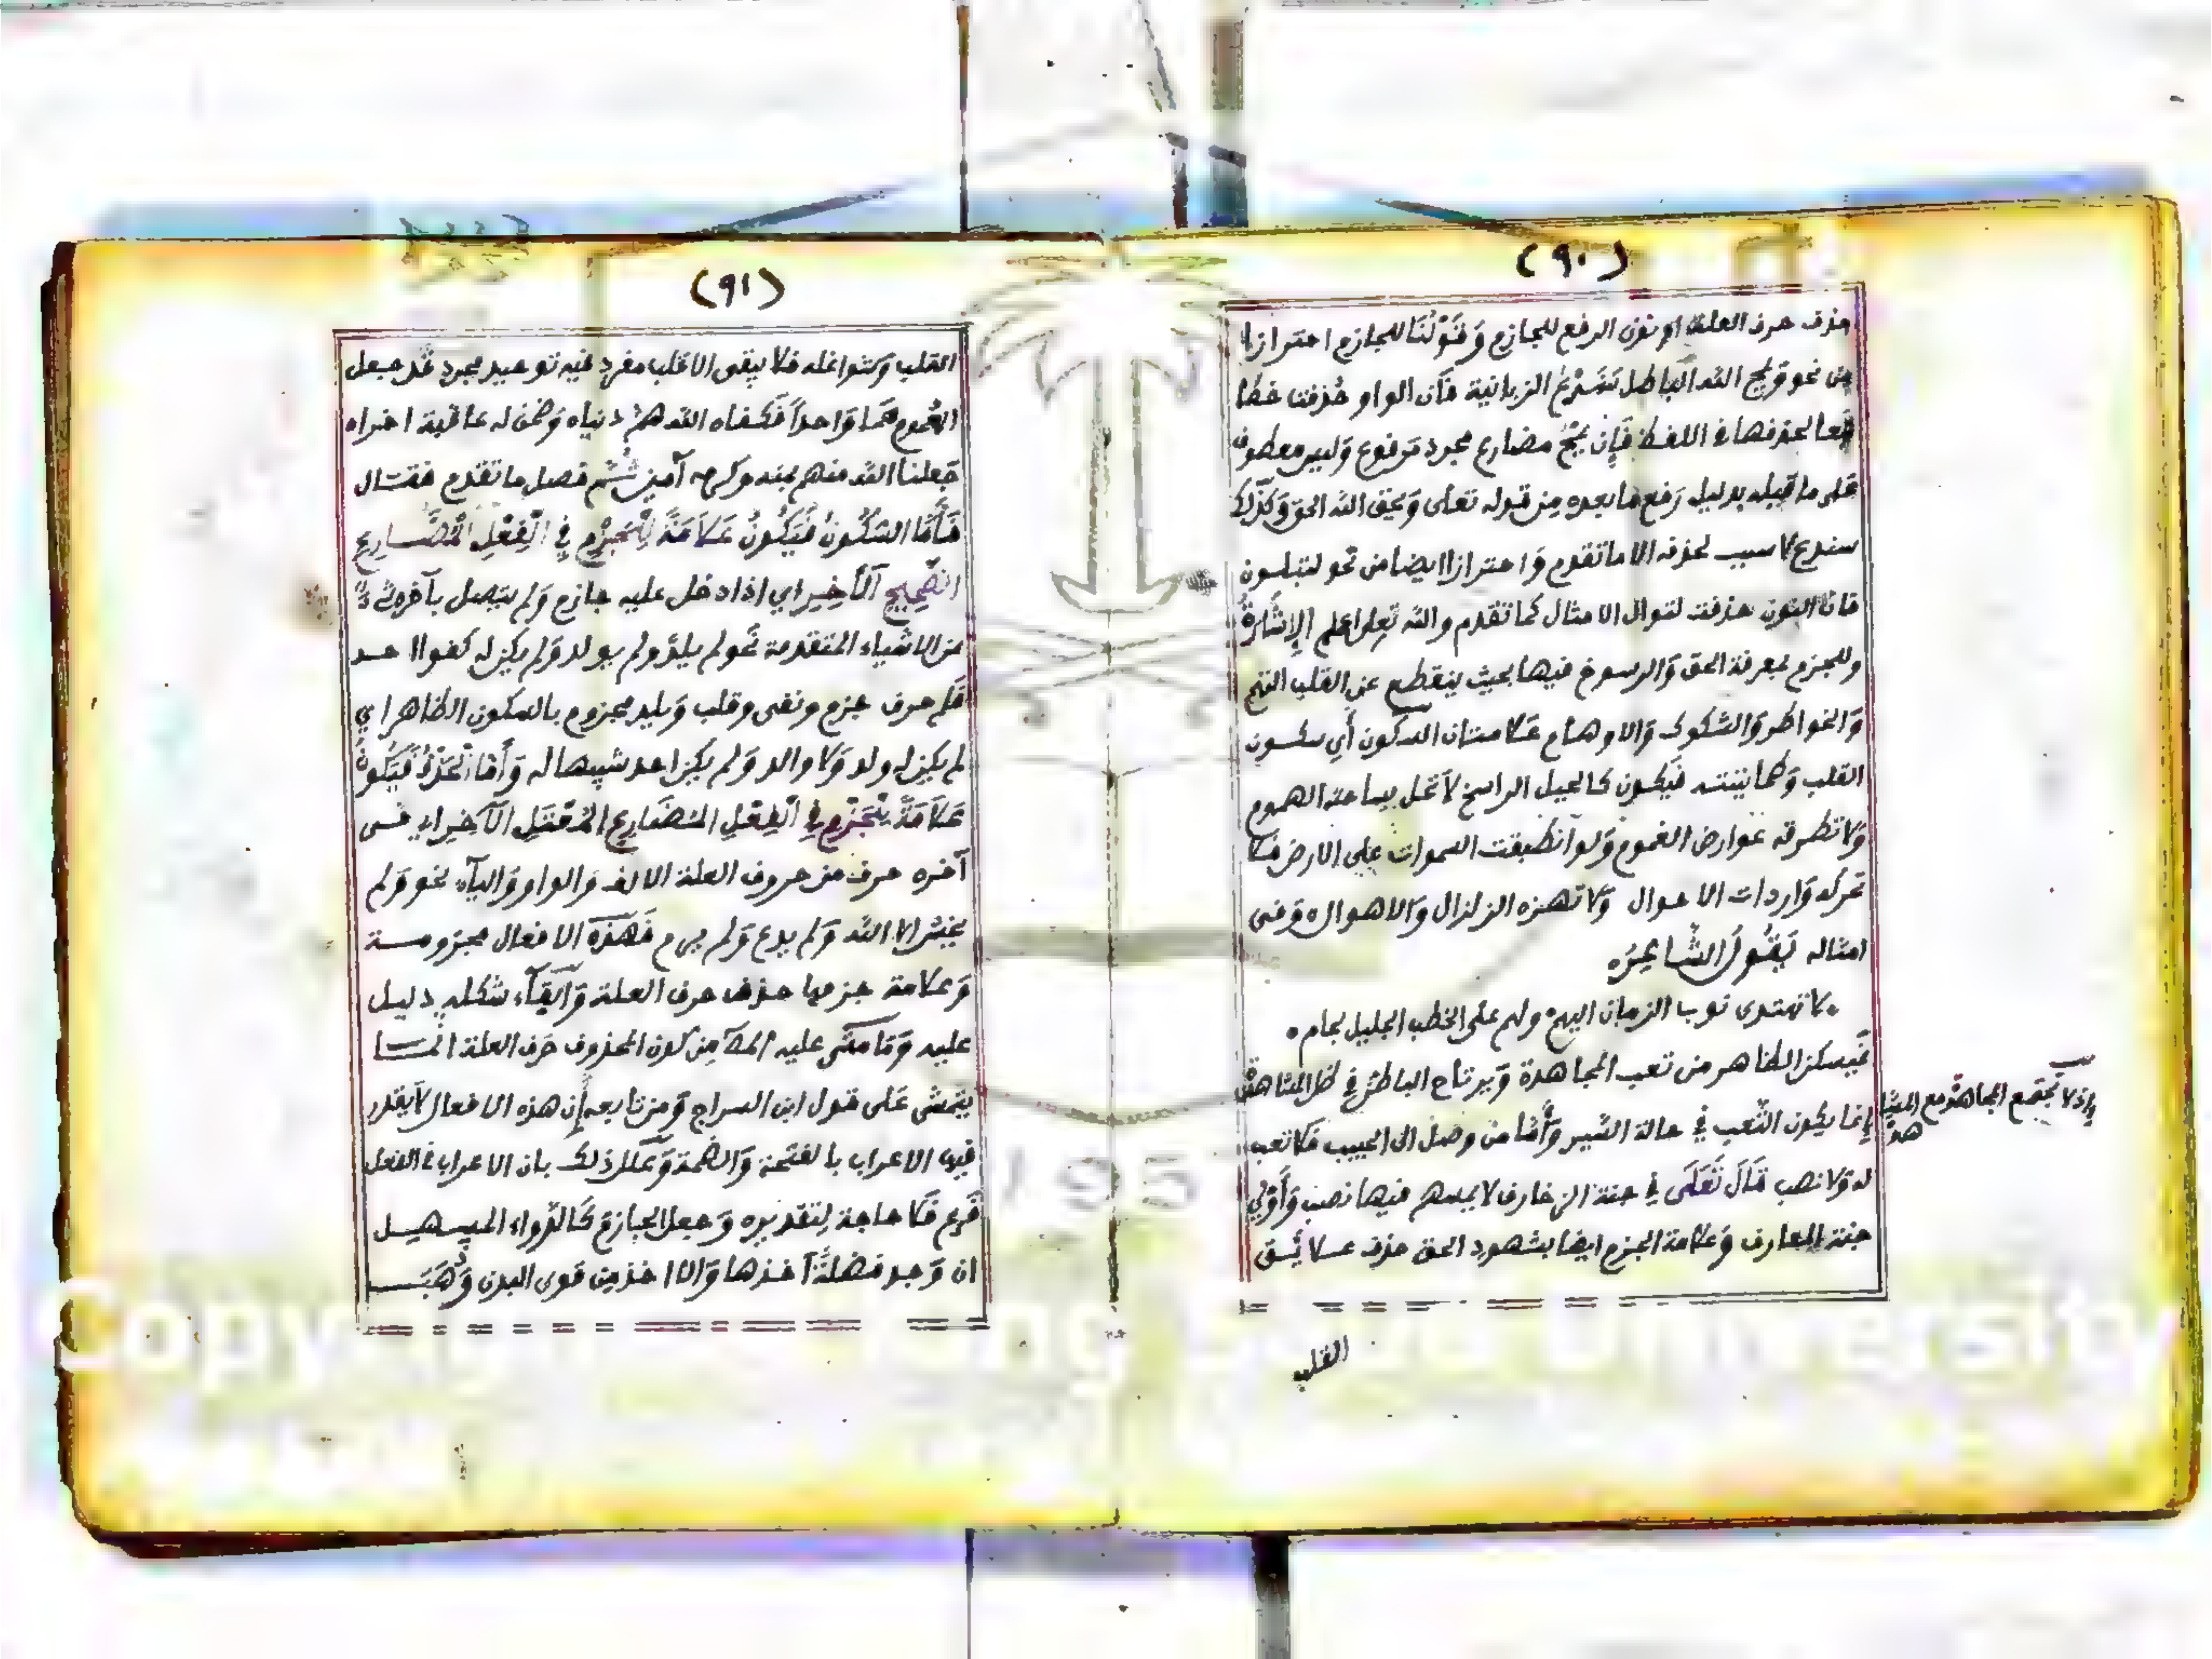 (٩٠)
حذف حرف العلة او نون الرفع للجازم وَقَوْلُنَا للجازم احترازا
من نحو قوله ويمح الله الباطل سَنَدْعُ الزبانية فَان الواو حُذفت خطا
تبعا لحذفها في اللفظ فَإن يَمْحُ مضارع مجرد مَرفوع وَليس معطوف
عَلى ما قبله بدليل رَفع ما بعده مِن قوله تعالى وَيحق الله الحق وَكَذلك
سندع لا سبب لحذفه الا ما تقدم وَاحترازا ايضا من نحو لتبلون
فان النون حذفت لتوال الامثال كما تقدم والله تعالى اعلم الإِشَارَةُ
وللجزم بمعرفة الحق وَالرسوخ فيها بحيث ينقطع عن القلب
وَالخواطر وَالشكوك وَالاوهام عَلامتان السكون أَي سكون
القلب وَطمانينته فَيكون كالجبل الراسخ لاَ تحل بساحته الهموم
وَلا تطرقه عوارض الغموم وَلو انطبقت السموات على الارض مَا
تحركه وَاردات الاحوال وَلا تهزه الزلزال وَالاهوال وَفى
امثاله يَقُولُ الشَّاعِرُ
لا تهتدى نوب الزمان اليهم ولهم على الخطب الجليل لجام
فَيسكن الظاهر من تعب المجاهدة وَيرتاح الباطن في ظل المشاهدة
إنما يكون التَعب في حالة السَّير وَأَمَّا من وصل الى الحبيب فَلا تعب
له وَلا نصب قَالَ تَعَالَى في جنة الزخارف لا يمسهم فيها نصب وَأَولى
جنة المعارف وَعلامة الجزم ايضا بشهود الحق حذف عَلايق
إذ لا تجتمع المجاهدة مع المشا
هدة
القلب
(٩١)
القلب وَشواغله فَلا يبقى الا قلب مفرد فيه توحيد مجرد قَد جعل
الهُموم هَمّا وَاحداً فَكفاه الله هَمَّ دنياه وَضمن له عاقبة اخراه
جَعلنا الله منهم بمنه وكرمه آمين ثُمَّ فصل ما تقدم فقال
فَأَمَّا السُّكُونُ فَيَكُونُ عَلاَمَةً لِلْجَزْمِ فِي الْفِعْلِ الْمُضَارِعِ
الصَّحِيحِ الْآخِرِ اي اذا دخل عليه جازم وَلم يتصل بآخره شَيْ
من الاشياء المتقدمة نَحو لم يلد وَلم يولد وَلم يكن له كفوا احد
فَلم حرف جزم ونفى وقلب وَيلد مجزوم بالسكون الظاهر اي
لم يكن له ولد وَلا والد وَلم يكن احد شبيها له وَأَمَّا الْحَذْفُ فَيَكُونُ
عَلاَمَةً لِلْجَزْمِ فِي الْفِعْلِ الْمُضَارِعِ الْمُعْتَلِّ الْآخِرِ اي فى
آخره حرف من حروف العلة الالف وَالواو وَاليآء نحو وَلم
يخش الا الله وَلم يدع وَلم يرم فَهَذِه الافعال مجزومة
وَعلامة جزمها حذف حرف العلة وَابقآء شكله دليل
عليه وَمَا مَشَى عليه المص مِن كون المحذوف حَرف العلة انما
يتمشى عَلى قول ابن السراج وَمن تابعه إِن هذه الافعال لاَ يقدر
فيها الاعراب بالفتحة وَالضمة وَعَلل ذلك بان الاعراب في الفعل
فَرع فَلا حاجة لتقديره وَجعل الجازم كَالدواء المسهل
ان وَجد فضلةً اخذها وَالا اخذ من قوى البدن